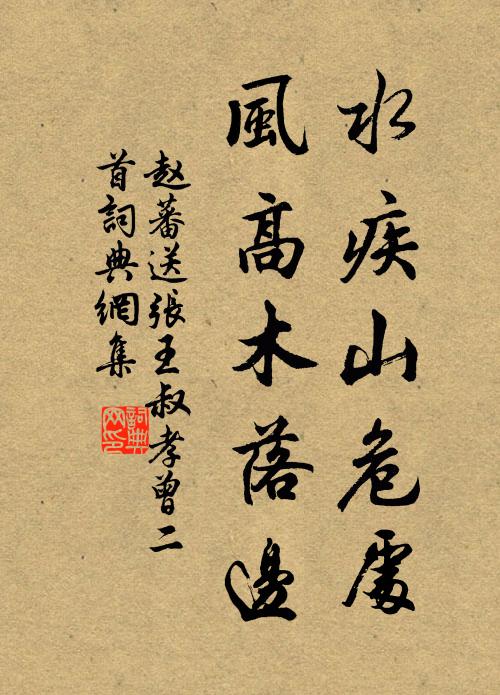 水疾山危處
風高木落邊
赵蕃送張王叔孝曾二
首詞典網集
詞典网印